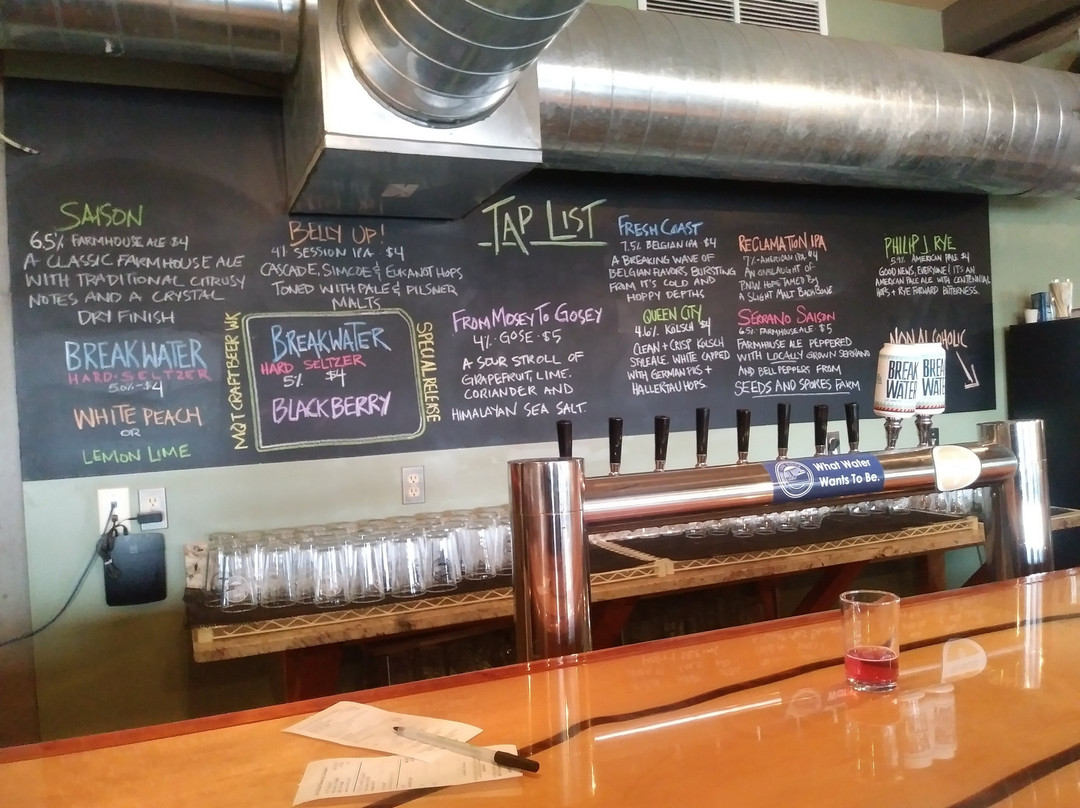 TAP LIST
SAISON
6.5% FARMHOUSE ALE $4
A CLASSIC FARMHOUSE ALE
WITH TRADITIONAL CITRUSY
NOTES AND A CRYSTAL
DRY FINISH
BREAKWATER
HARD SELTZER
5.0% $4
WHITE PEACH
OR
LEMON LIME
BELLY UP!
4% SESSION IPA $4
CASCADE, SIMCOE & EUKANOT HOPS
TONED WITH PALE & PILSNER
MALTS
MQT CRAFT BEER WK
BREAKWATER
HARD SELTZER
5% $4
BLACKBERRY
SPECIAL RELEASE
FROM MOSEY TO GOSEY
4% · GOSE · $5
A SOUR STROLL OF
GRAPEFRUIT, LIME,
CORIANDER AND
HIMALAYAN SEA SALT.
FRESH COAST
7.5% BELGIAN IPA $4
A BREAKING WAVE OF
BELGIAN FLAVORS, BURSTING
FROM IT'S COLD AND
HOPPY DEPTHS
QUEEN CITY
4.6% KOLSCH $4
CLEAN + CRISP KOLSCH
STYLE ALE. WHITE CAPPED
WITH GERMAN PILS +
HALLERTAU HOPS.
RECLAMATION IPA
7% AMERICAN IPA $4
AN ONSLAUGHT OF
PNW HOPS TAMED BY
A SLIGHT MALT BACKBONE
SERRANO SAISON
6.5% FARMHOUSE ALE · $5
FARMHOUSE ALE PEPPERED
WITH LOCALLY GROWN SERRANO
AND BELL PEPPERS FROM
SEEDS AND SPOKES FARM
PHILIP J. RYE
5.9% AMERICAN PALE $4
GOOD NEWS, EVERYONE! IT'S AN
AMERICAN PALE ALE WITH CENTENNIAL
HOPS + RYE FORWARD BITTERNESS.
NON ALCOHOLIC
BREAK
WATER
BREAK
WATE
What Water
Wants To Be.